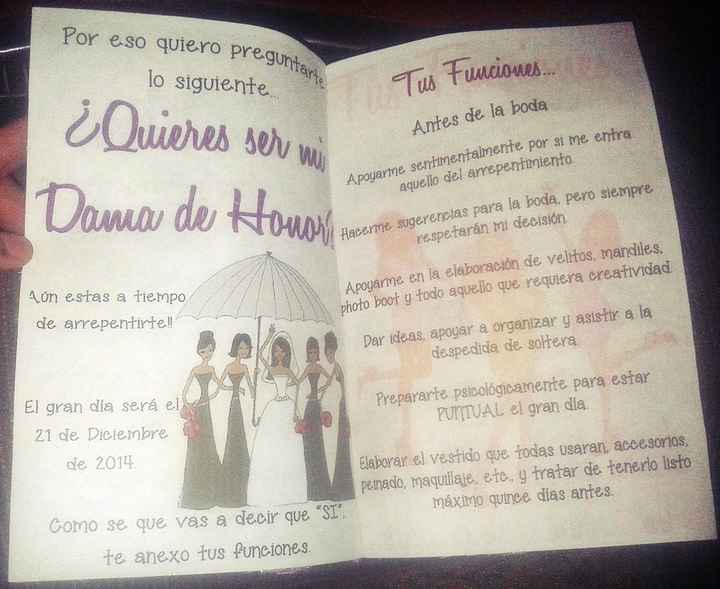 Por eso quiero preguntarte
lo siguiente...
¿Quieres ser mi
Dama de Honor?
Aún estas a tiempo
de arrepentirte!!
El gran día será el
21 de Diciembre
de 2014.
Como se que vas a decir que "SI",
te anexo tus funciones.
Tus Funciones...
Antes de la boda
Apoyarme sentimentalmente por si me entra
aquello del arrepentimiento.
Hacerme sugerencias para la boda, pero siempre
respetarán mi decisión.
Apoyarme en la elaboración de velitos, mandiles,
photo boot y todo aquello que requiera creatividad.
Dar ideas, apoyar a organizar y asistir a la
despedida de soltera.
Prepararte psicológicamente para estar
PUNTUAL el gran día.
Elaborar el vestido que todas usaran, accesorios,
peinado, maquillaje, etc., y tratar de tenerlo listo
máximo quince días antes.